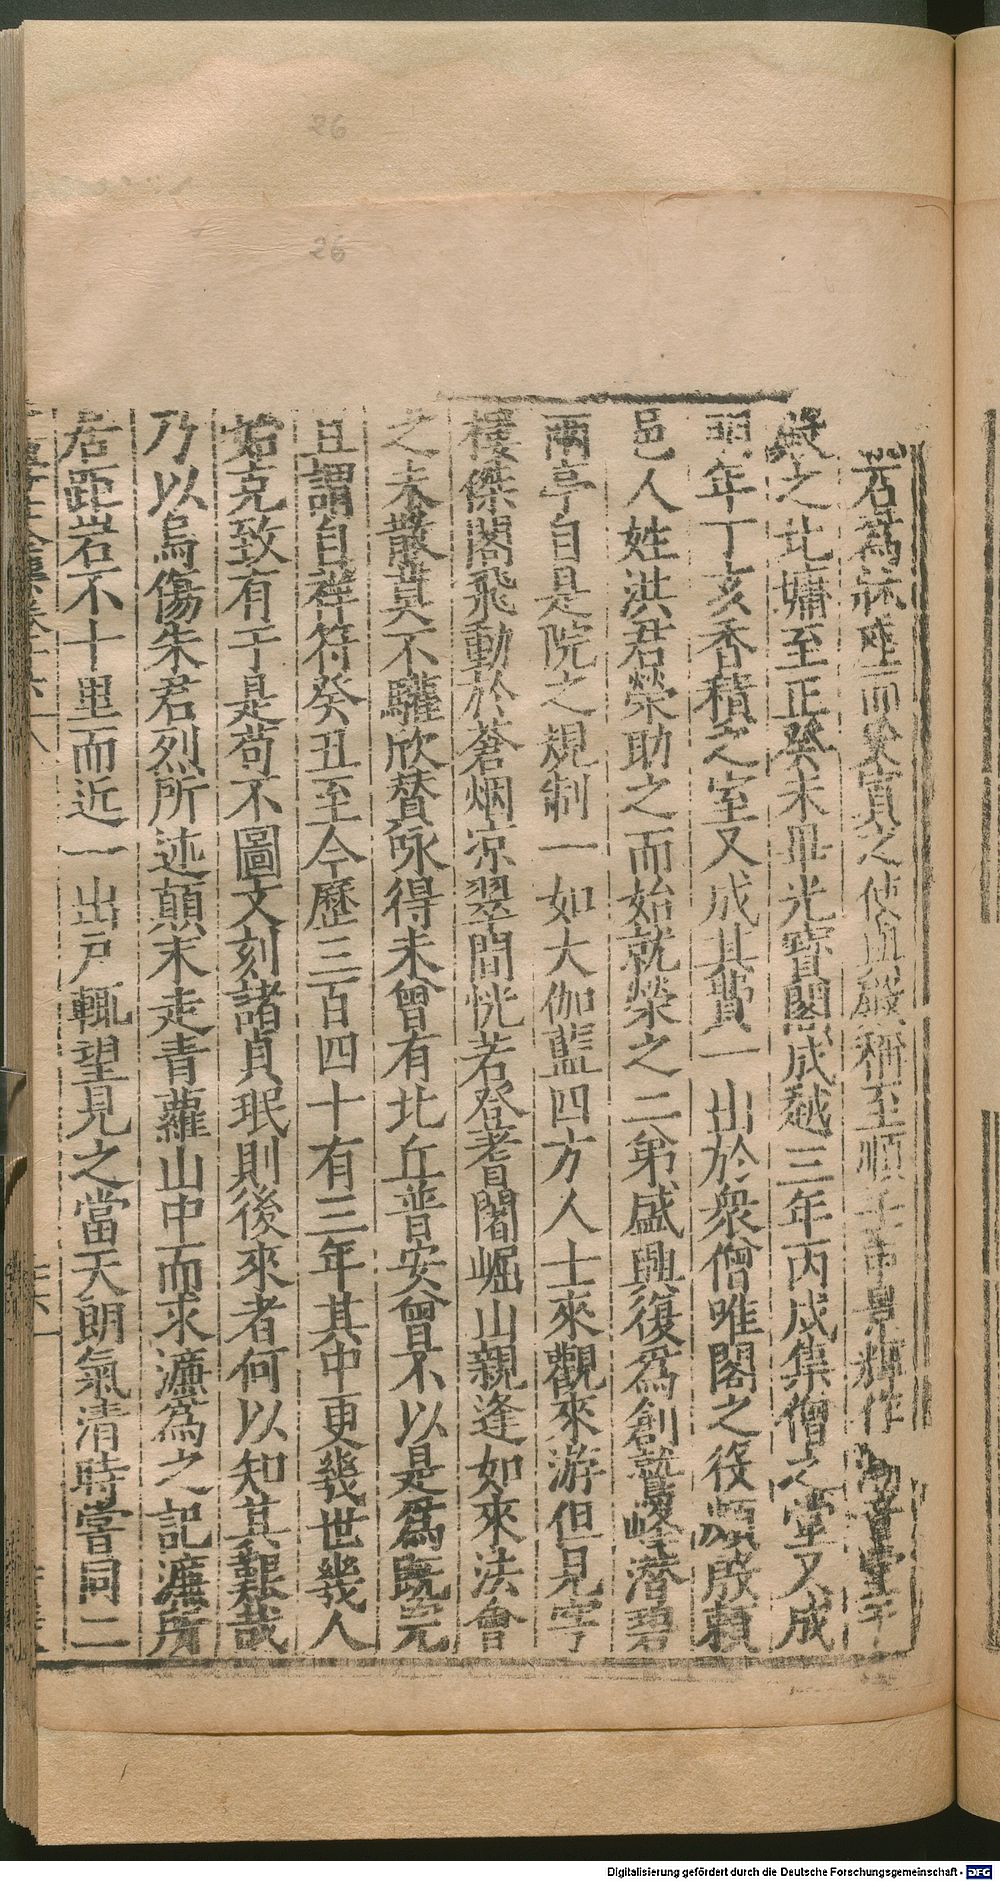 石爲牀座而𡨴之使益嚴稱至順壬申景輝作海會堂于
殿之北墉至正癸未毘光寳閣成越三年丙戌集僧之堂又成
明年丁亥香積之室又成其費一出於衆僧唯閣之役頗啟賴
邑人姓洪君榮助之而始就榮之二弟盛興復爲創鷲峰潛碧
兩亭自是院之規制一如大伽藍四方人士來觀來游但見穹
樓傑閣飛動於蒼烟凉翠間恍若登耆闍崛山親逢如來法會
之未散莫不驩欣賛咏得未曾有北丘普安曾不以是爲既完
且謂自祥符癸丑至今歷三百四十有三年其中更幾世幾人
始克致有于是苟不圖文刻諸貞珉則後來者何以知其艱哉
乃以烏傷朱君烈所述顛末走青蘿山中而求濂爲之記濂所
居距岩不十里而近一出戸輒望見之當天朗氣清時嘗同二
26
26
Digitalisierung gefördert durch die Deutsche Forschungsgemeinschaft - DFG